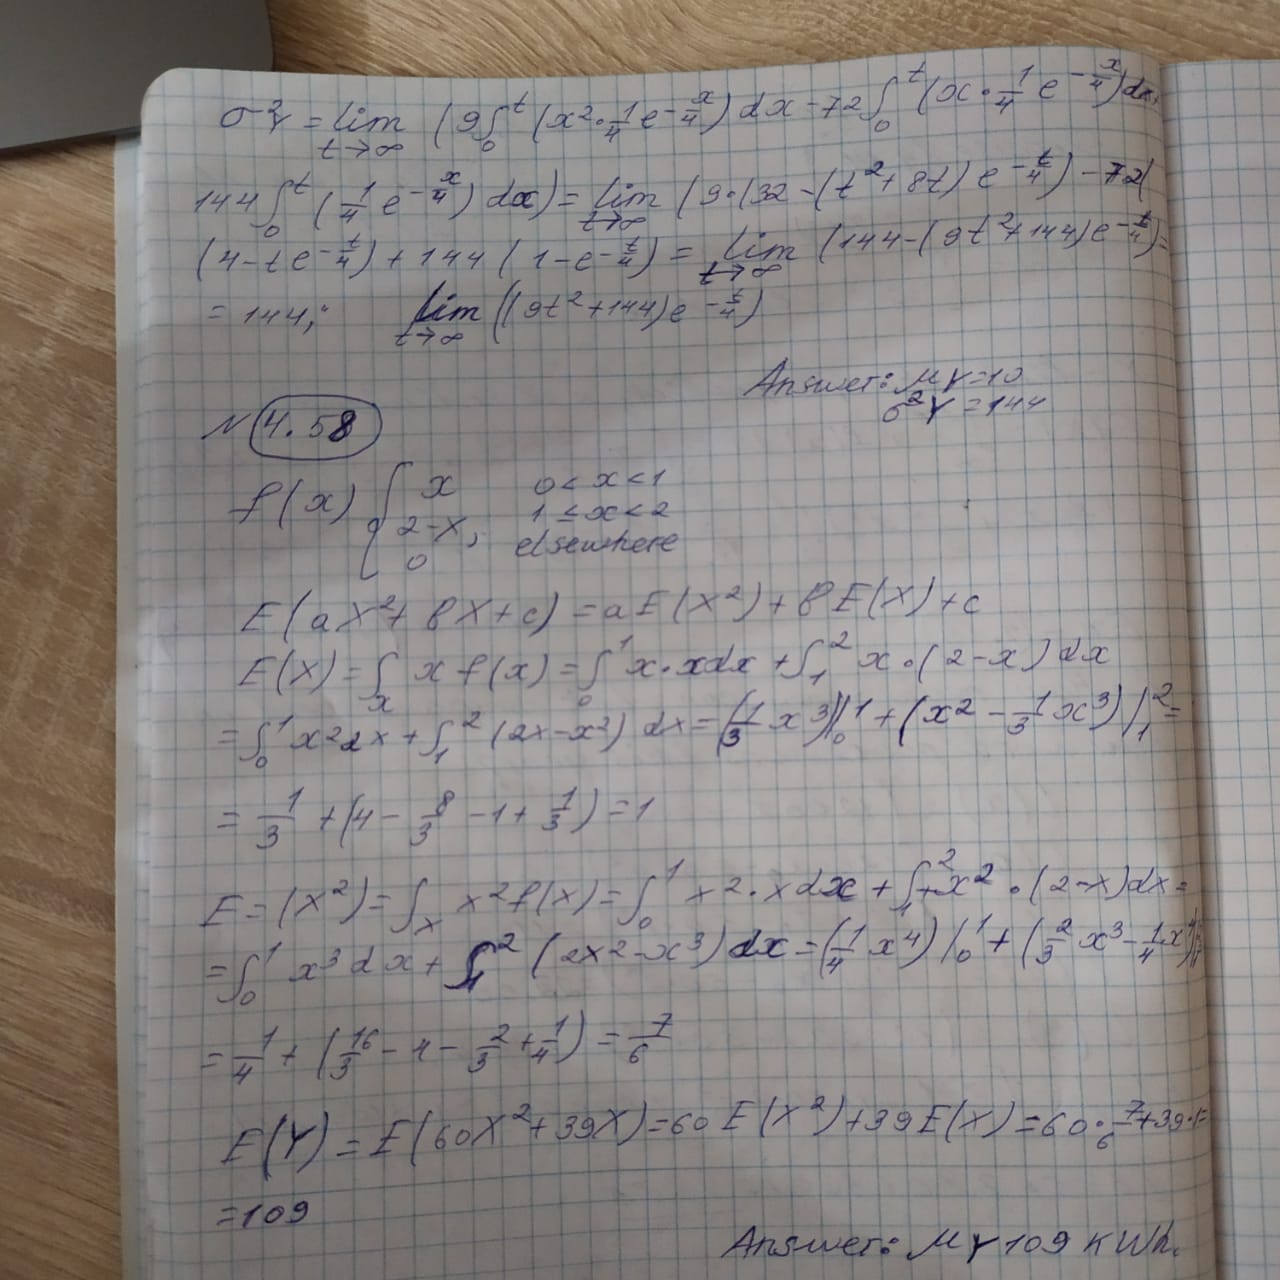 σ²Y = lim t→∞ (9∫₀ᵗ (x²·1/4 e^(-x/4)) dx - 72∫₀ᵗ (x·1/4 e^(-x/4)) dx+
144∫₀ᵗ (1/4 e^(-x/4)) dx) = lim t→∞ (9·(32-(t²+8t) e^(-t/4)) - 72(
(4-te^(-t/4)) + 144 (1-e^(-t/4)) = lim t→∞ (144-(9t²+144)e^(-t/4)) =
= 144; lim t→∞ ((9t²+144)e^(-t/4))
Answer: μY=10
σ²Y=144
N 4.58
f(x) { x 0<x<1
2-x, 1≤x<2
0 elsewhere
E(aX²+bX+c) = aE(X²)+bE(X)+c
E(X) = ∫ₓ x f(x) = ∫₀¹ x·xdx + ∫₁² x·(2-x) dx
= ∫₀¹ x²dx + ∫₁² (2x-x²) dx = (1/3 x³)|₀¹ + (x² - 1/3 x³)|₁² =
= 1/3 + (4 - 8/3 - 1 + 1/3) = 1
E=(X²) = ∫ₓ x²f(x) = ∫₀¹ x²·xdx + ∫₁² x²·(2-x)dx =
= ∫₀¹ x³dx + ∫₁² (2x²-x³) dx = (1/4 x⁴)|₀¹ + (2/3 x³ - 1/4 x⁴)
= 1/4 + (16/3 - 4 - 2/3 + 1/4) = 7/6
E(Y) = E(60X²+39X) = 60E(X²)+39E(X) = 60·7/6+39·1=
=109
Answer: μY 109 KWh.